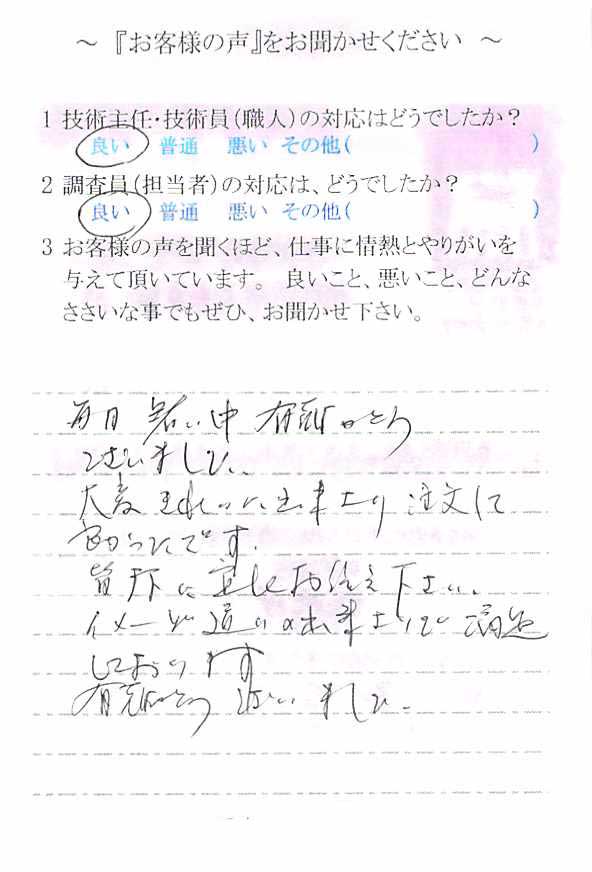 ～ 『お客様の声』をお聞かせください ～
1 技術主任・技術員(職人)の対応はどうでしたか?
良い 普通 悪い その他( )
2 調査員(担当者)の対応は、どうでしたか?
良い 普通 悪い その他( )
3 お客様の声を聞くほど、仕事に情熱とやりがいを
与えて頂いています。 良いこと、悪いこと、どんな
ささいな事でもぜひ、お聞かせ下さい。
毎日 暑い中 有難とう
ございました。
大変 きれいに出来上り 注文して
良かったです。
皆様に宜しくお伝え下さい。
イメージ通りの出来上りで満足
しております
有難とうございました。